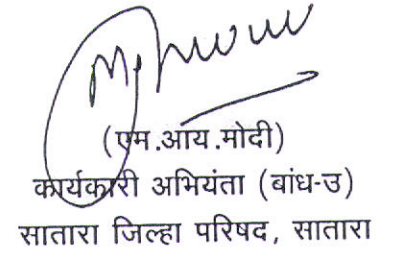 (एम.आय.मोदी)
कार्यकारी अभियंता (बांध-उ)
सातारा जिल्हा परिषद, सातारा